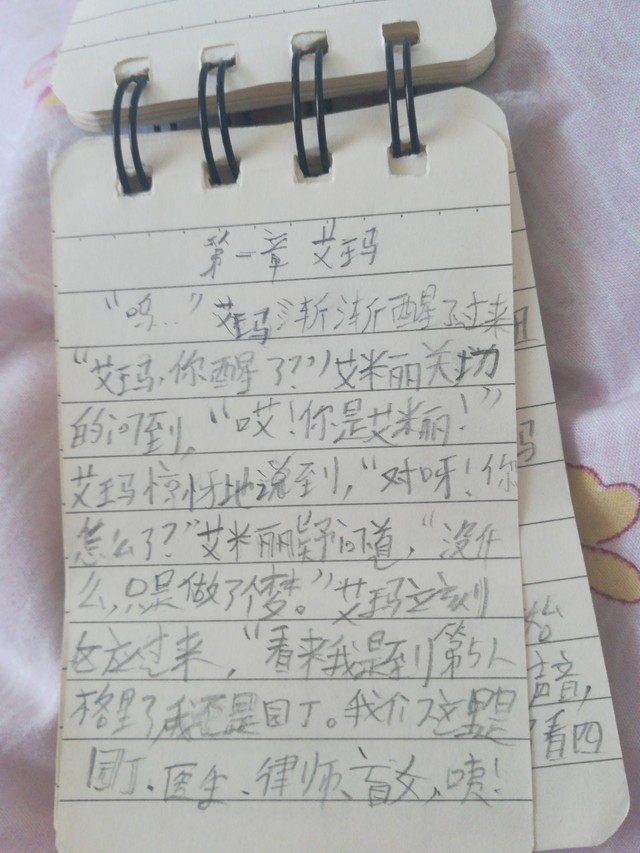 第一章 艾玛
“呜…”艾玛渐渐醒了过来
“艾玛,你醒了?”艾米丽关切
的问到,“哎!你是艾米丽!”
艾玛惊讶地说到,“对呀!你
怎么了?”艾米丽疑问道,“没什
么,只是做了个梦。”艾玛立刻
反应过来,“看来我是到第5人
格里了,我还是园丁。我们这里是
园丁、医生、律师、盲女,咦!
玛
始
盲音,
看四